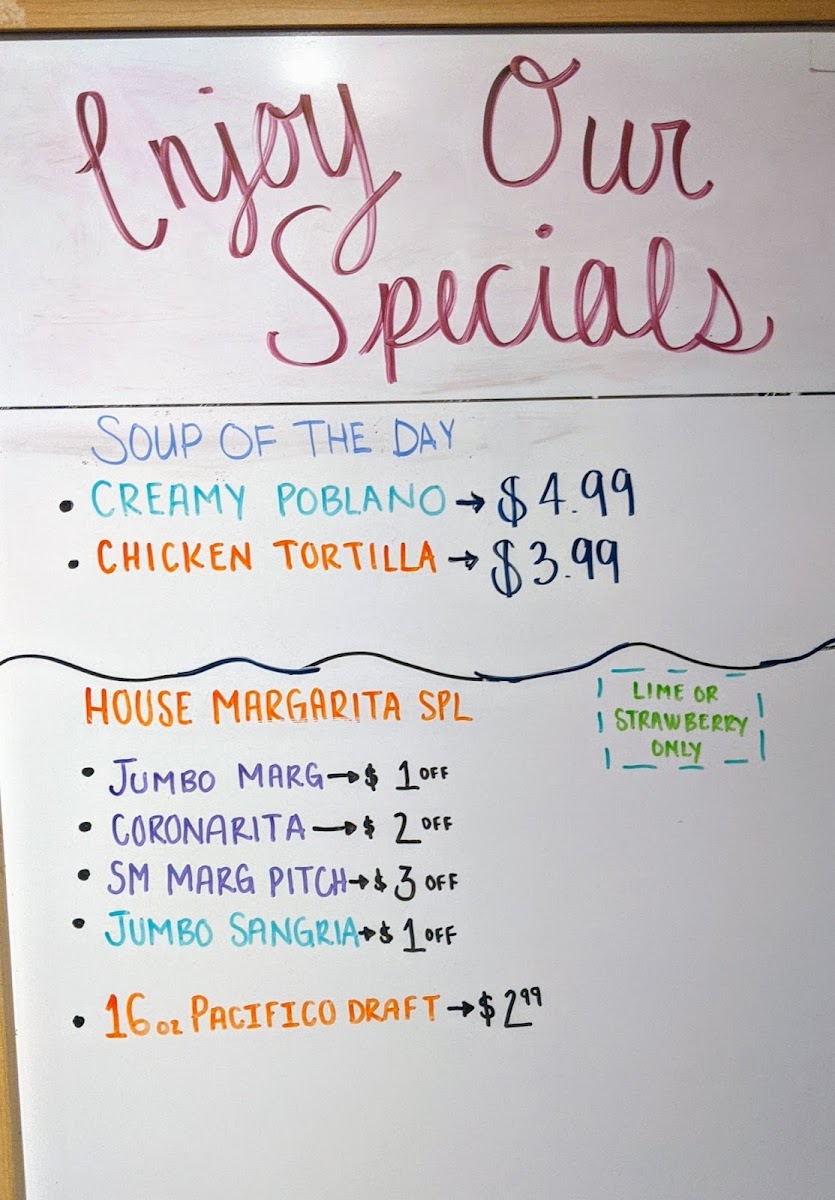 Enjoy Our
Specials
SOUP OF THE DAY
• CREAMY POBLANO → $4.99
• CHICKEN TORTILLA → $3.99
HOUSE MARGARITA SPL
LIME OR
STRAWBERRY
ONLY
• JUMBO MARG → $ 1 OFF
• CORONARITA → $ 2 OFF
• SM MARG PITCH → $ 3 OFF
• JUMBO SANGRIA → $ 1 OFF
• 16oz PACIFICO DRAFT → $2⁹⁹